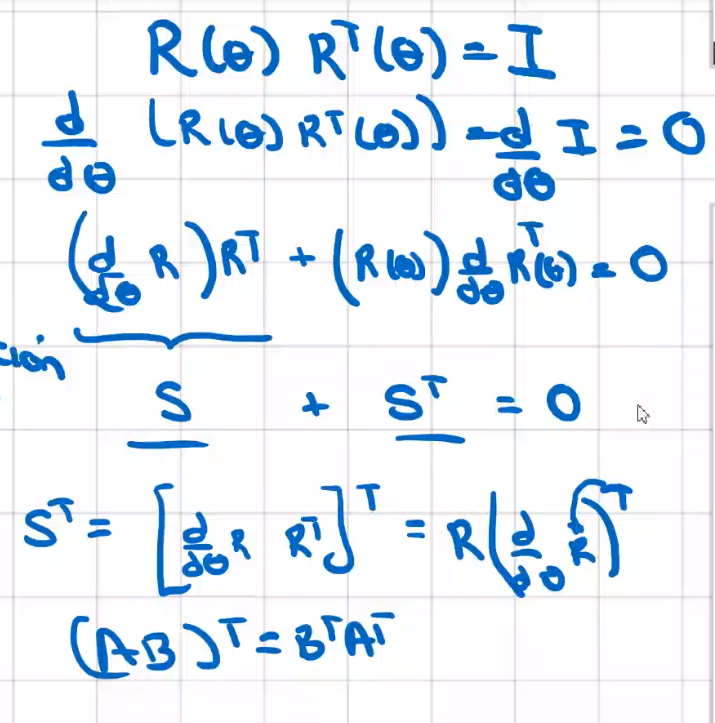 R(θ) Rᵀ(θ) = I
d/dθ (R(θ) Rᵀ(θ)) = d/dθ I = 0
(d/dθ R) Rᵀ + (R(θ)) d/dθ Rᵀ(θ) = 0
S + Sᵀ = 0
Sᵀ = [d/dθ R Rᵀ]ᵀ = R (d/dθ R)ᵀ
(AB)ᵀ = BᵀAᵀ